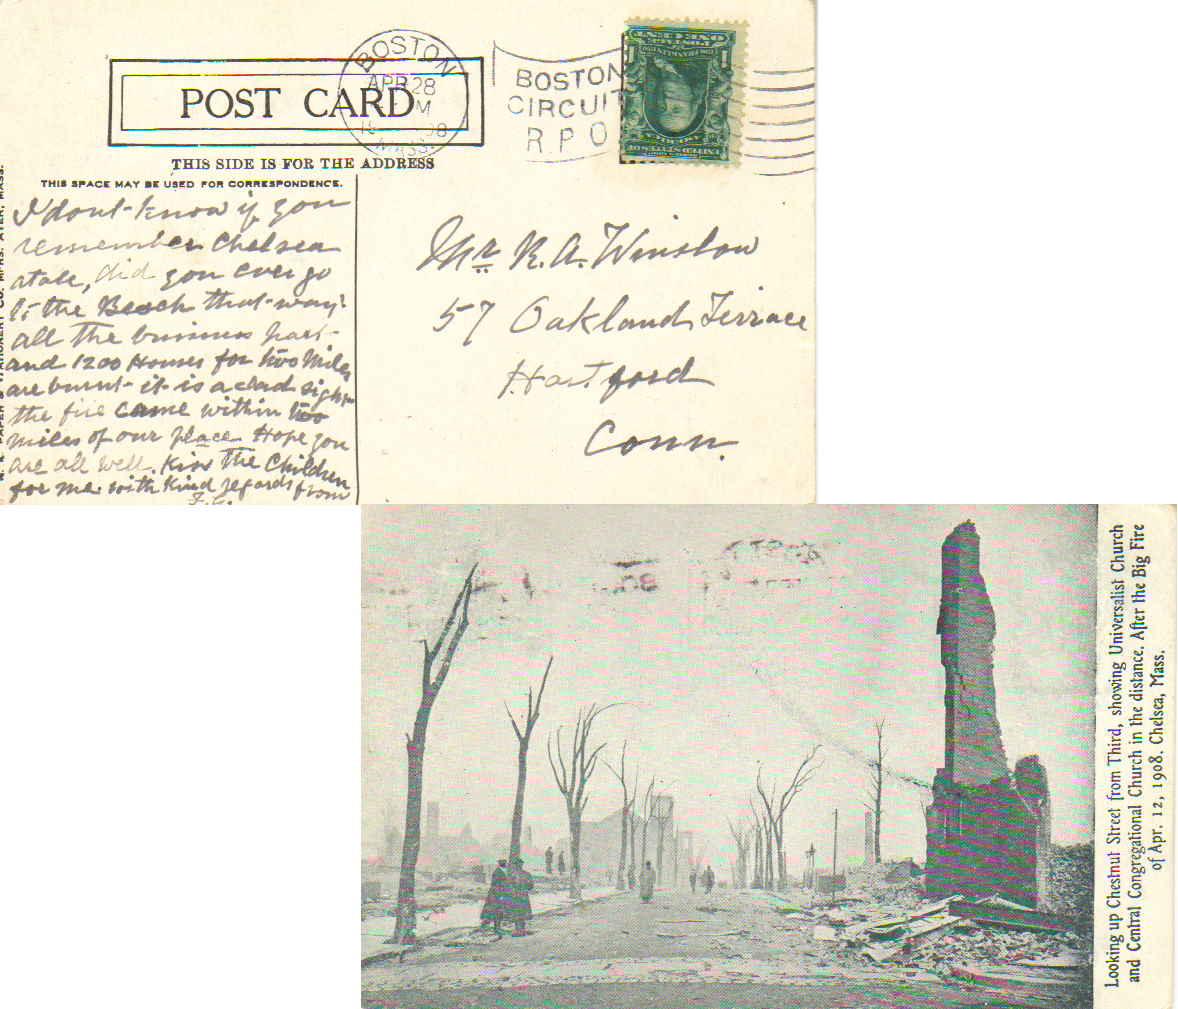 BOSTON
APR 28
MASS.
BOSTON
CIRCUIT
R.P.O
POST CARD
THIS SIDE IS FOR THE ADDRESS
THIS SPACE MAY BE USED FOR CORRESPONDENCE.
I dont know if you
remember Chelsea
atall, did you ever go
to the Beach that way?
all the business part
and 1200 Houses for two Miles
are burnt it is a sad sight
the fire came within two
miles of our place Hope you
are all well. Kiss The Children
for me with Kind regards from
Mr R.A. Winslow
57 Oakland Terrace
Hartford
Conn.
ONE CENT
Looking up Chestnut Street from Third, showing Universalist Church
and Central Congregational Church in the distance. After the Big Fire
of Apr. 12, 1908. Chelsea, Mass.